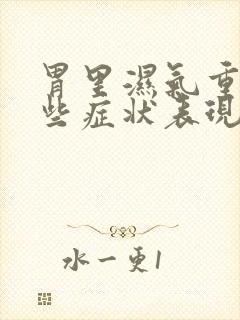 胃里濕氣重
些症狀表現
水一更1